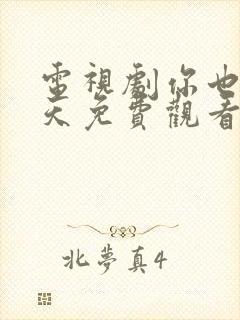 電視劇你也
天免費觀看
北夢真4